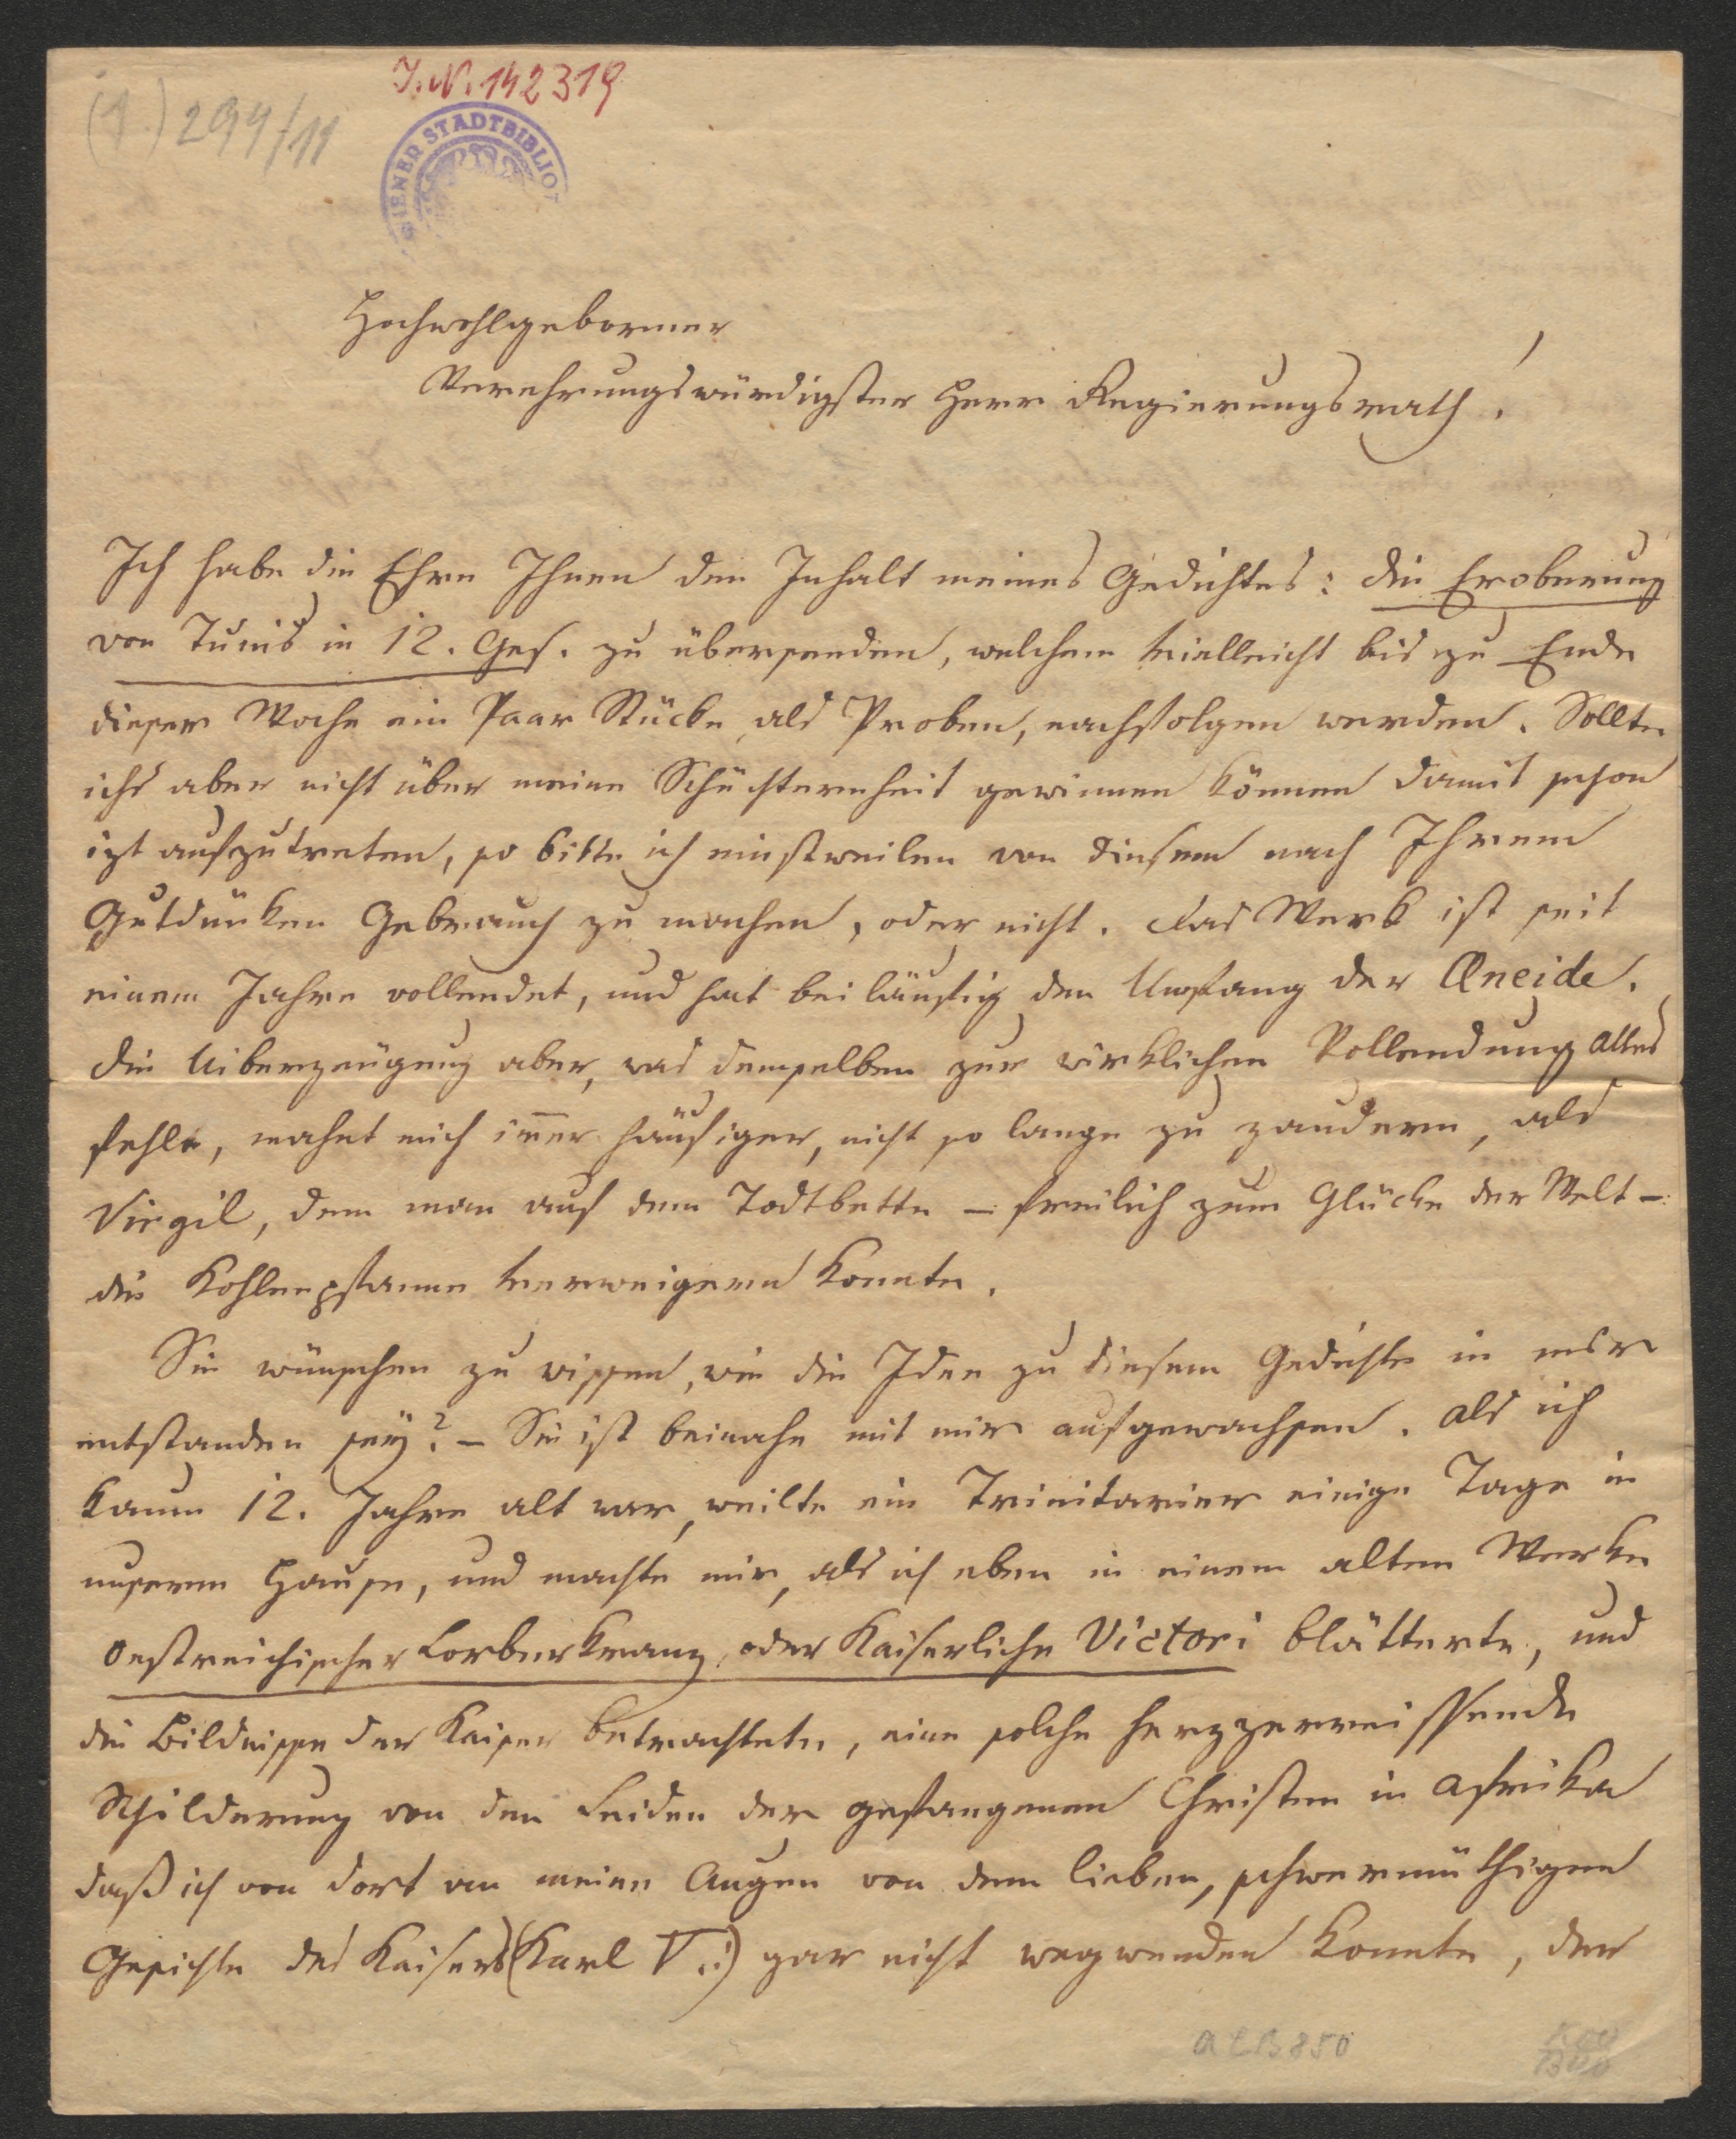 J.N. 142319
(1.) 294/11
WIENER STADTBIBLIOT
Hochwohlgeborner
Verehrungswürdigster Herr Regierungsrath!
Ich habe die Ehre Ihnen den Inhalt meines Gedichtes: die Eroberung
von Tunis in 12. Ges. zu übersenden, welchem vielleicht bis zu Ende
dieser Woche ein Paar Stücke, als Proben, nachfolgen werden. Sollte
ichs aber nicht über meine Schüchternheit gewinnen können damit schon
izt aufzutreten, so bitte ich einstweilen von diesem nach Ihrem
Gutdünken Gebrauch zu machen, oder nicht. Das Werk ist seit
einem Jahre vollendet, und hat beiläufig den Umfang der Æneide.
Die Uiberzeugung aber, was demselben zur wirklichen Vollendung alles
fehle, mahnt mich im̅er häufiger, nicht so lange zu zaudern, als
Virgil, dem man auf dem Todtbette – freilich zum Glücke der Welt –
die Kohlenpfanne verweigern konnte.
Sie wünschen zu wissen, wie die Idee zu diesem Gedichte in mir
entstanden sey? – Sie ist beinahe mit mir aufgewachsen. Als ich
kaum 12. Jahre alt war, weilte ein Trinitarier einige Tage in
unserem Hause, und machte mir, als ich eben in einem alten Werke
Oestreichischer Lorberkranz, oder Kaiserliche Victori blätterte, und
die Bildnisse der Kaiser betrachtete, eine solche herzzerreissende
Schilderung von den Leiden der gefangenen Christen in Afrika
daß ich von dort an meine Augen von dem lieben, schwermüthigen
Gesichte des Kaisers (Karl V.:) gar nicht wegwenden konnte, der